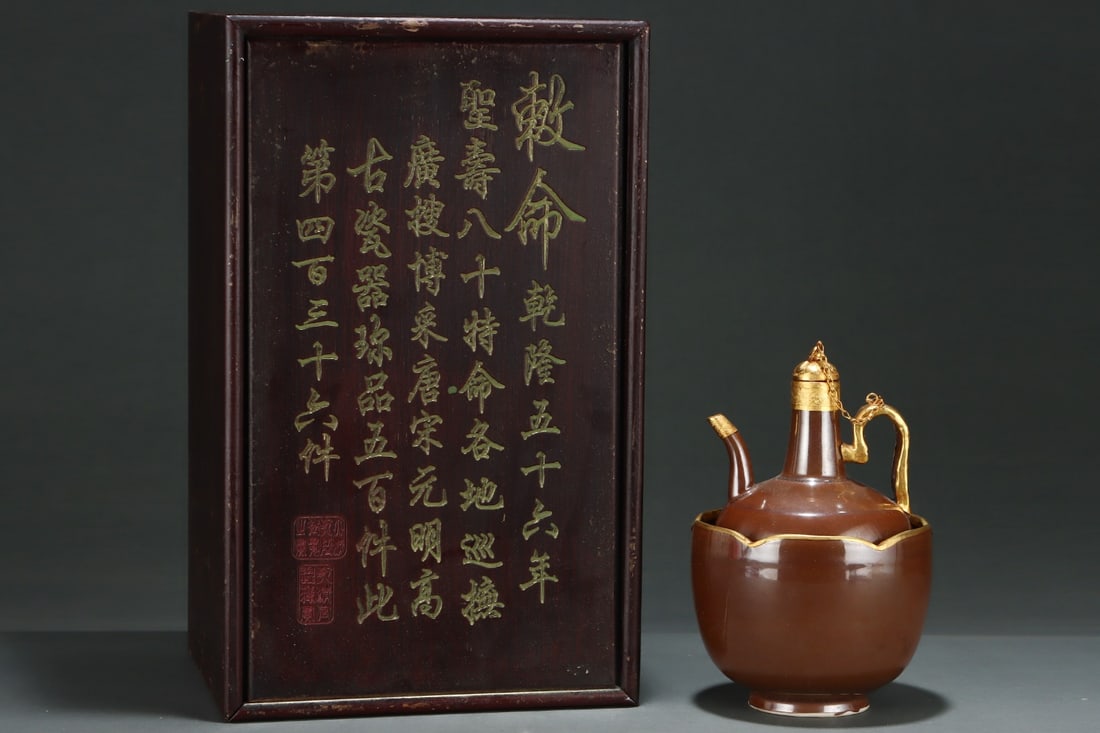 敕命乾隆五十六年
聖壽八十特命各地巡撫
廣搜博采唐宋元明高
古瓷器珎品五百件此
第四百三十六件